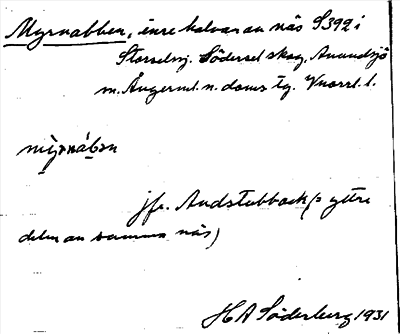 Myrnabben, inre halvan av näs S392 i
Storselsj. Södersel skog, Anundsjö
m. Ångerml. n. doms tg. Vnorrl. l.
mỳrnábən
jfr. Andstubback (= yttre
delen av samma näs)
H A Söderberg 1931